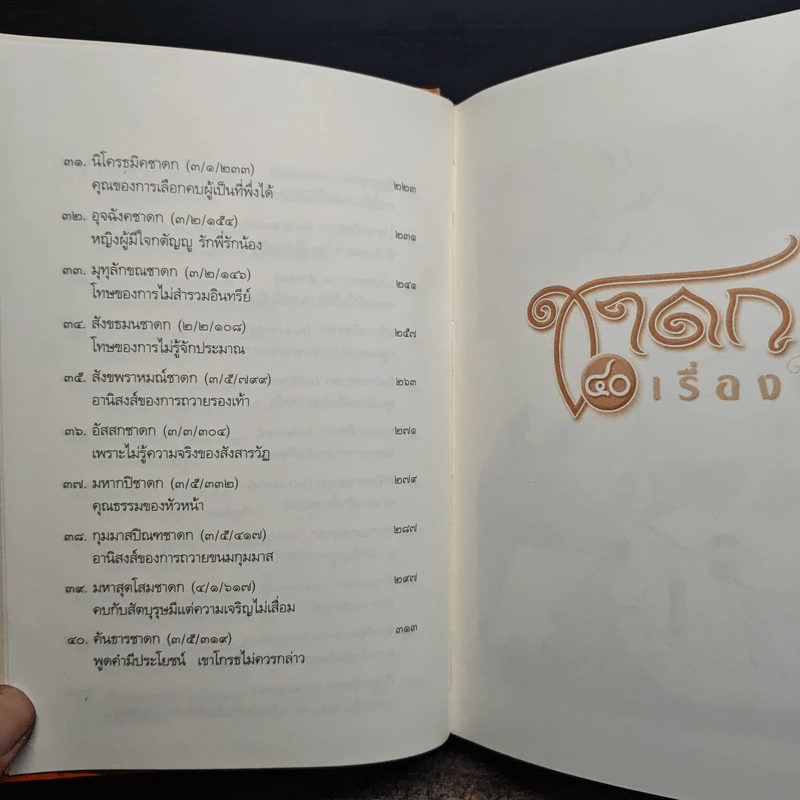 ๓๑. นิโครธมิคชาดก (๓/๑/๒๓๓) ๒๒๓
คุณของการเลือกคบผู้เป็นที่พึ่งได้
๓๒. อุจฉังคชาดก (๓/๒/๑๕๔) ๒๓๑
หญิงผู้มีใจกตัญญู รักพี่รักน้อง
๓๓. มุทุลักขณชาดก (๓/๒/๑๔๖) ๒๔๑
โทษของการไม่สำรวมอินทรีย์
๓๔. สังขธมนชาดก (๒/๒/๑๐๘) ๒๕๗
โทษของการไม่รู้จักประมาณ
๓๕. สังขพราหมณ์ชาดก (๓/๕/๗๙๙) ๒๖๓
อานิสงส์ของการถวายรองเท้า
๓๖. อัสสกชาดก (๓/๓/๓๐๔) ๒๗๑
เพราะไม่รู้ความจริงของสังสารวัฏ
๓๗. มหากปิชาดก (๓/๕/๓๓๒) ๒๗๙
คุณธรรมของหัวหน้า
๓๘. กุมมาสปิณฑชาดก (๓/๕/๔๑๗) ๒๘๗
อานิสงส์ของการถวายขนมกุมมาส
๓๙. มหาสุตโสมชาดก (๔/๑/๖๑๗) ๒๙๗
คบกับสัตบุรุษมีแต่ความเจริญไม่เสื่อม
๔๐. คันธารชาดก (๓/๕/๓๑๙) ๓๑๓
พูดคำมีประโยชน์ เขาโกรธไม่ควรกล่าว
ชาดก
๔๐ เรื่อง